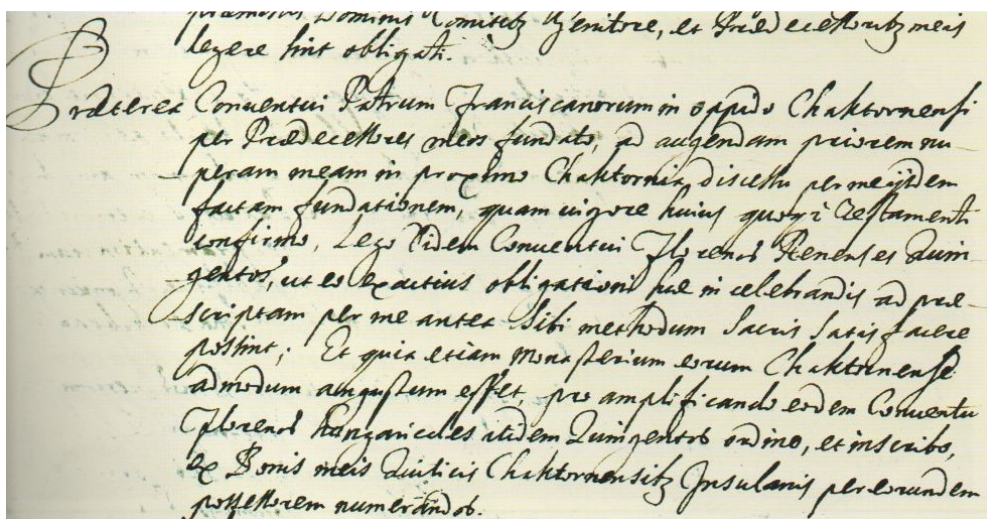 Dominis Comitibz Genitore, et Prædecessoribz meis
legere sint obligati.
Præterea Conuentui Patrum Franciscanorum in oppido Chaktornensi
per Prædecessores meos fundato, ad augendam priorem nu-
peram meam in proximo Chaktornia discessu per me ijsdem
factam fundationem, quam uigore huius quoqz Testamenti
confirmo, Lego Eidem Conuentui Florenos Renenses Quin
gentos, ut eo exactius obligationi suæ in celebrandis ad præ-
scriptam per me antea sibi methodum Sacris Satis facere
possint; Et quia etiam Monasterium eorum Chaktornense
admodum angustum esset, pro amplificando eodem Conuentu
Florenos hungaricales itidem Quingentos ordino, et inscribo,
ex Bonis meis Chaktornensibz Insulanis per eorundem
possessorem numerandos.